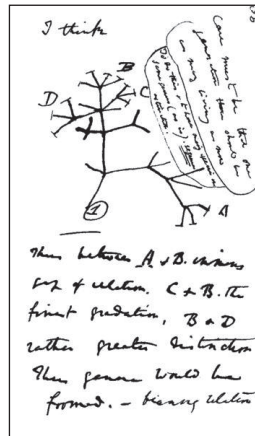 I think
B
D
C
A
1
Case must be that one
generation then should be
as many living as now
To do this & to have many species in
same genus (as is), requires
extinction.
Thus between A & B. immens
gap of relation. C & B. the
finest gradation, B & D
rather greater distinction
Thus genera would be
formed. — bearing relation